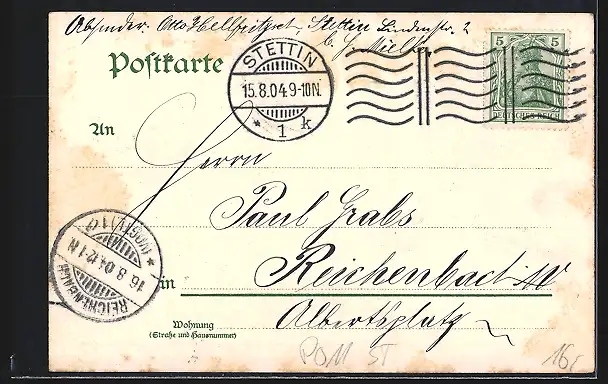 Absender: Otto Hellfritzet, Stettin Lindenstr. 2
b. J. Mielke
Postkarte
STETTIN
15.8.04.9-10N.
* 1 k
5 5
DEUTSCHES REICH
An
Herrn
Paul Grabs
in Reichenbach i/V
Albertsplatz
REICHENBACH (VOGTL) 1
16.8.04.12-1N.
Wohnung
(Straße und Hausnummer)
POM ST
16,-